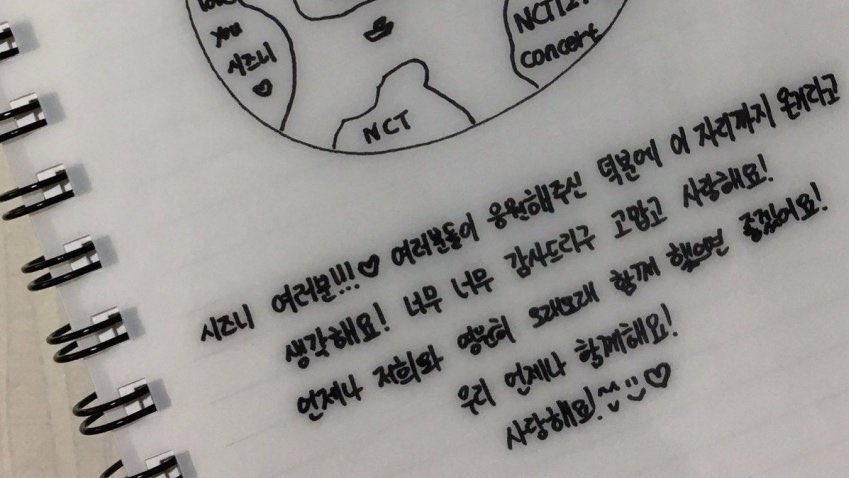 you
시즈니
♡
NCT127
concert
NCT
시즈니 여러분!!!♡ 여러분들이 응원해주신 덕분에 이 자리까지 온거라고
생각해요! 너무 너무 감사드리구 고맙고 사랑해요!
언제나 저희와 영원히 오래오래 함께 했으면 좋겠어요!
우리 언제나 함께해요!
사랑해요!^^:)♡